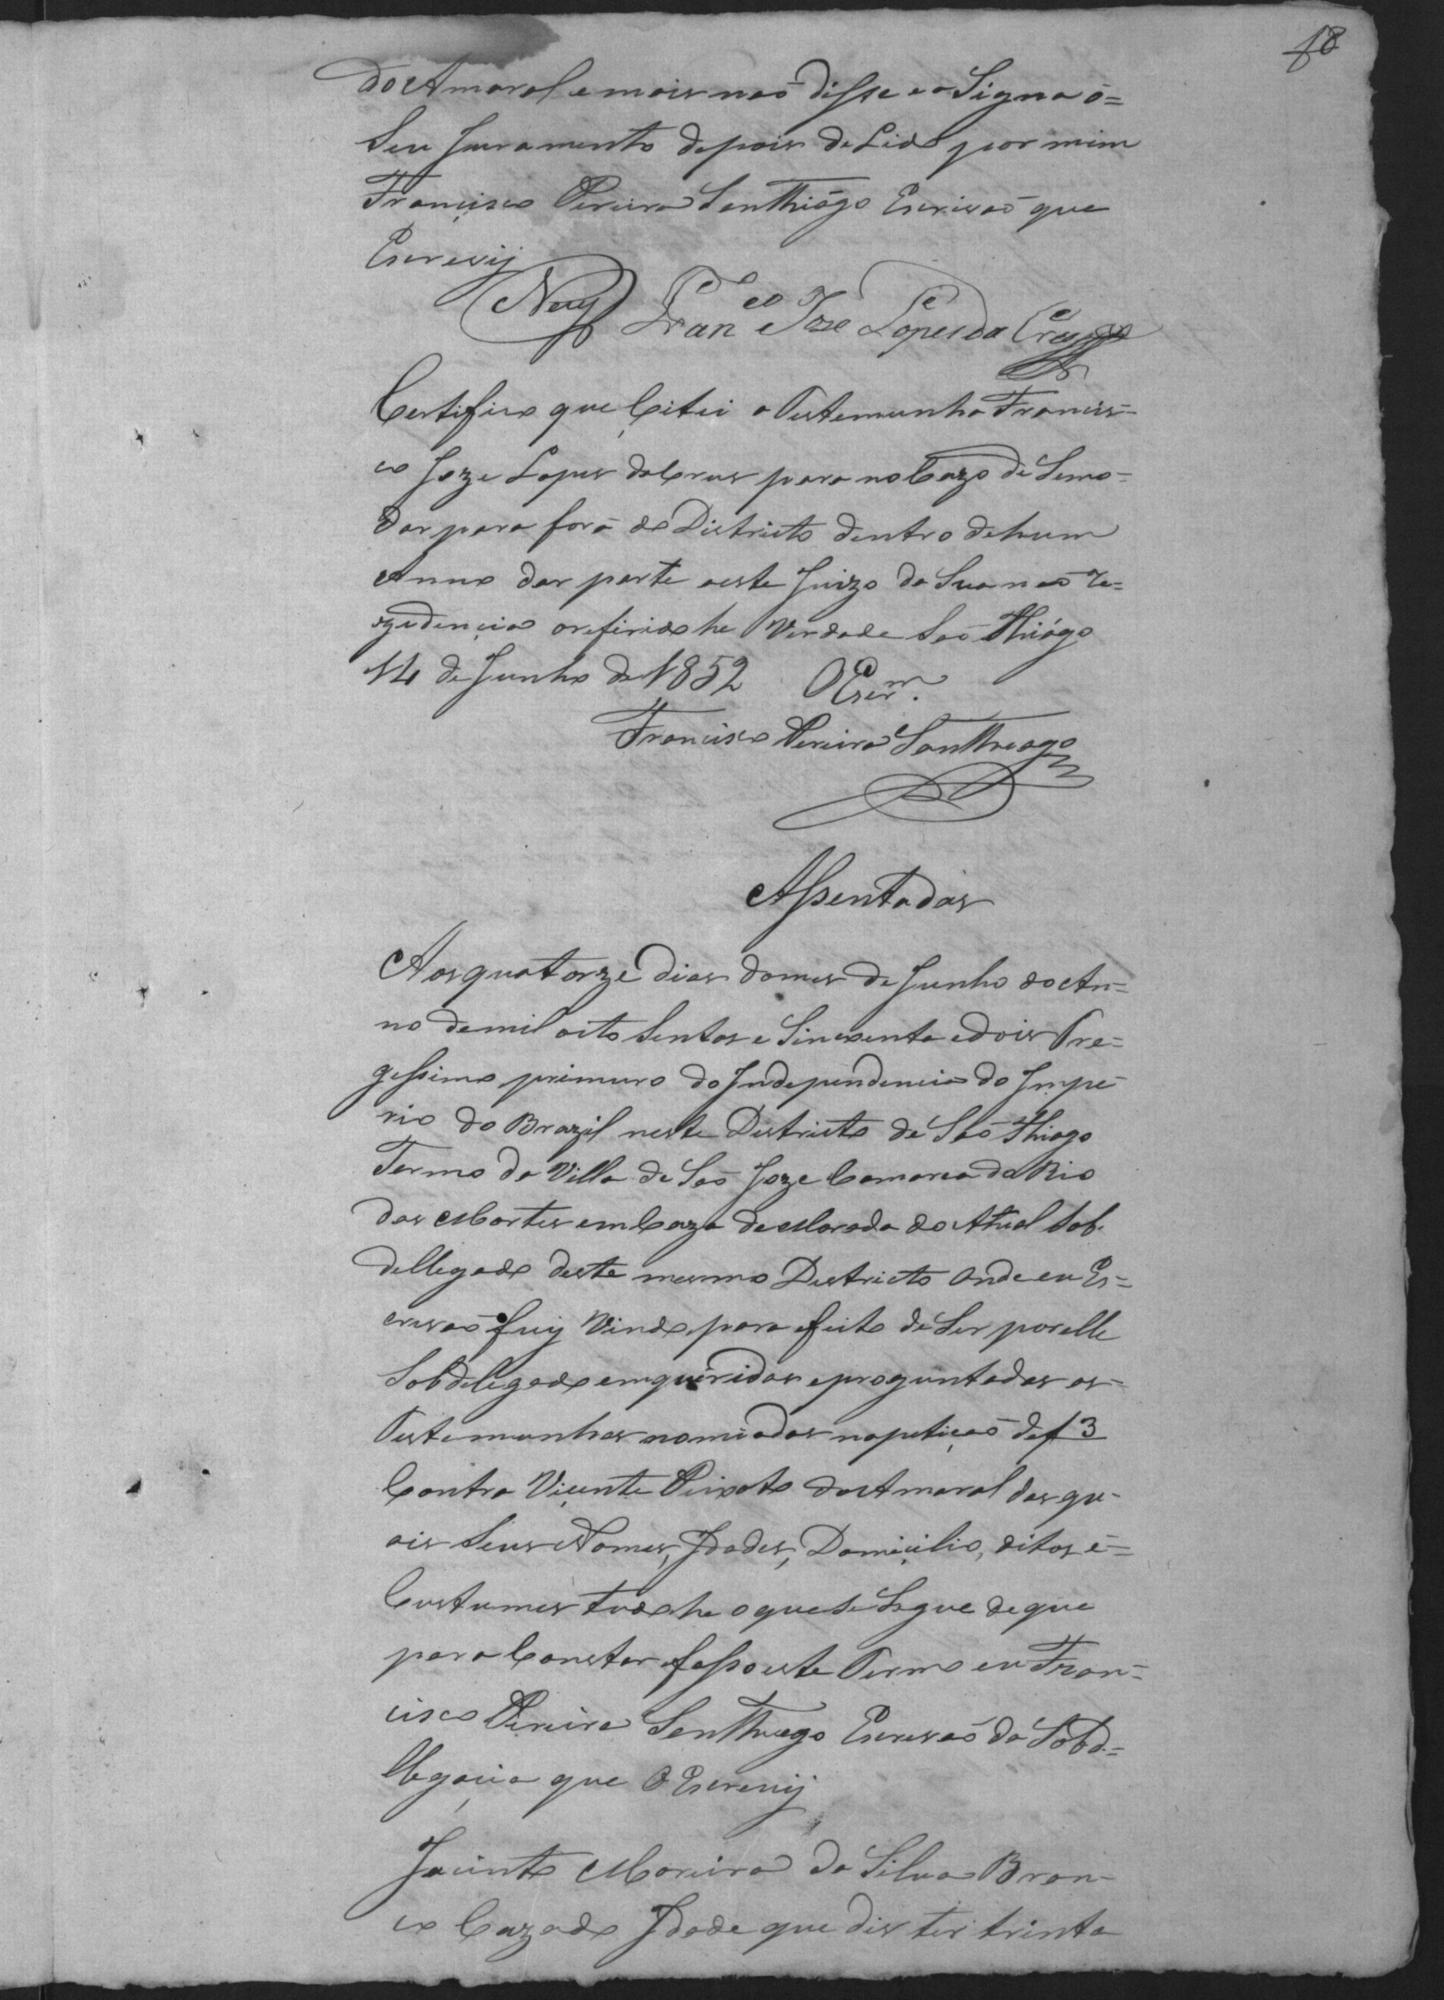 18
do Amaral e mais naõ disse e aSigna ō=
Seu Juramento depois de Lido por mim
Francisco Pereira SanThiágo Escrivaõ que
Escrevij
Nery Franco Joze Lopes da Crus
Certifico que Citei a Testemunha Francis=
co Joze Lopes da Crus para no Cazo de Semo=
dar para fora do Districto dentro dehum
Anno dar parte aeste Juizo da Sua naõ re=
zidençia oreferido he Verdade Saõ Thiágo
14 de Junho de 1852 O Escram.
Francisco Pereira SanThiago
Assentadas
Aos quatorze dias domes de Junho do An=
no demil oito Sentos e Sincoenta e dois Tre=
gessimo primeiro da Independencia do Impe=
rio do Brazil neste Districto de Saõ Thiago
Termo da Villa de Saõ Joze Comarca do Rio
das Mortes em Caza de Morada do Atual Sob.
dellegado deste mesmo Districto onde eu Es=
crivaõ fuij Vindo para efeito de Ser por elle
Sobdelegado emqueridas eproguntadas as=
Testemunhas nomiadas napetiçaõ def 3
Contra Viçente Peixoto do Amaral das qu=
ais Seus Nomes, Idades, Domiçilio, ditos é=
Custumes tudo he oquese Segue deque
para Constar fasso este Termo eu Fran=
cisco Pereira SanThiago Escrivaõ da Sobd=
llegaçia que O Escrevij
Jacinto Moreira da Silva Bran=
co Cazado Idade que dis ter trinta